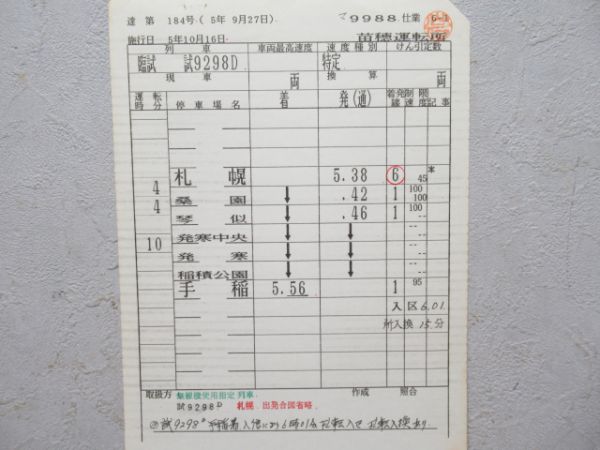 達 第 184号(5年 9月27日) 9988.仕業 6-1
施行日 5年10月16日 苗穂運転所
列 車 車両最高速度 速度種別 けん引定数
臨試 試9298D 特定
現 車 両 換 算 両
運転時分 停車場名 着 発(通) 着発線 制限速度 記事
札 幌 5.38 6 45
4 桑 園 ↓ .42 1 100 100
4 琴 似 ↓ .46 1 100 --
発寒中央 ↓ ↓ -- --
10 発 寒 ↓ ↓ -- --
稲積公園 ↓ ↓ -- --
手 稲 5.56 1 95
入区6.01
所入換 15.分
取扱方 無線機使用指定列車 作成 照合
試9298D 札幌. 出発合図省略.